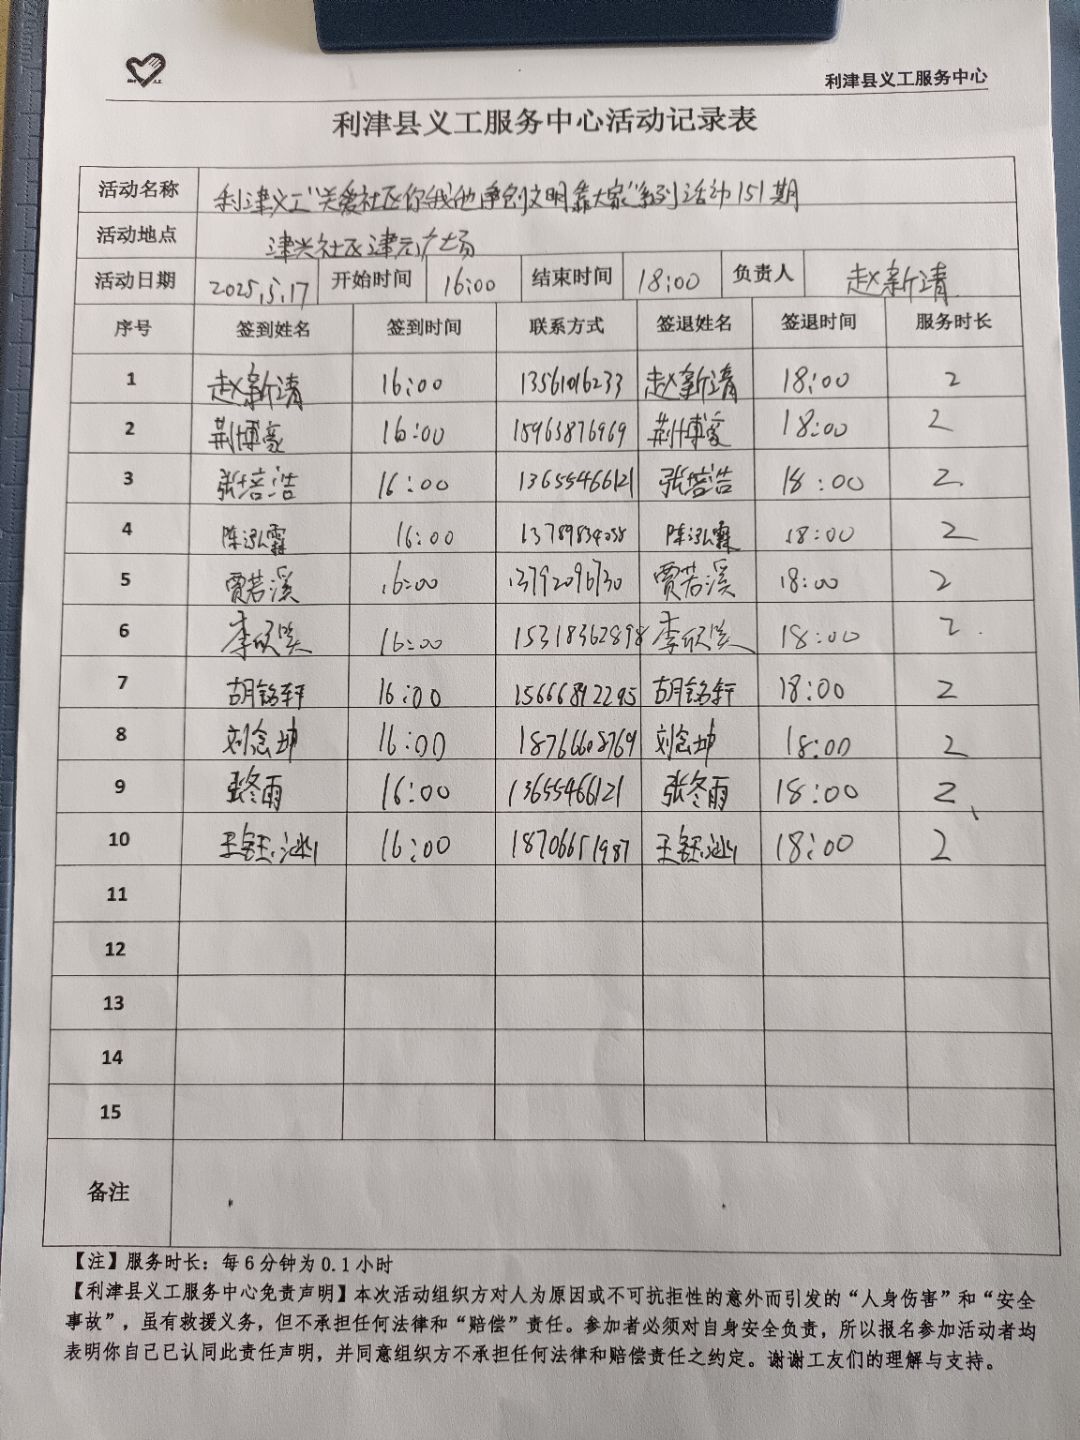 利津县义工服务中心
利津县义工服务中心活动记录表
活动名称 利津义工“关爱社区你我他 争创文明靠大家”系列活动151期
活动地点 津兴社区津元广场
活动日期 2025.5.17 开始时间 16:00 结束时间 18:00 负责人 赵新清
序号 签到姓名 签到时间 联系方式 签退姓名 签退时间 服务时长
1 赵新清 16:00 13561016233 赵新清 18:00 2
2 荆博豪 16:00 15963876969 荆博豪 18:00 2
3 张培浩 16:00 13655466121 张培浩 18:00 2
4 陈泓霖 16:00 13789834058 陈泓霖 18:00 2
5 贾若溪 16:00 13792096730 贾若溪 18:00 2
6 李欣 16:00 15318362898 李欣 18:00 2
7 胡铭轩 16:00 15666892295 胡铭轩 18:00 2
8 刘念坤 16:00 18766608769 刘念坤 18:00 2
9 张冬雨 16:00 13655466121 张冬雨 18:00 2
10 王钰 16:00 18706651987 王钰 18:00 2
11
12
13
14
15
备注
【注】服务时长：每6分钟为0.1小时
【利津县义工服务中心免责声明】本次活动组织方对人为原因或不可抗拒性的意外而引发的“人身伤害”和“安全
事故”，虽有救援义务，但不承担任何法律和“赔偿”责任。参加者必须对自身安全负责，所以报名参加活动者均
表明你自己已认同此责任声明，并同意组织方不承担任何法律和赔偿责任之约定。谢谢工友们的理解与支持。